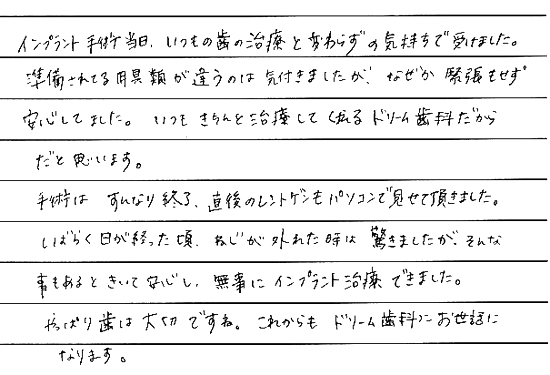 インプラント手術当日、いつもの歯の治療と変わらずの気持ちで受けました。
準備されてる用具類が違うのは気付きましたが、なぜか緊張もせず
安心してました。いつもきちんと治療してくれるドリーム歯科だから
だと思います。
手術はすんなり終了、直後のレントゲンもパソコンで見せて頂きました。
しばらく日が経った頃、ねじが外れた時は驚きましたが、そんな
事もあるときいて安心し、無事にインプラント治療できました。
やっぱり歯は大切ですね。これからもドリーム歯科にお世話に
なります。